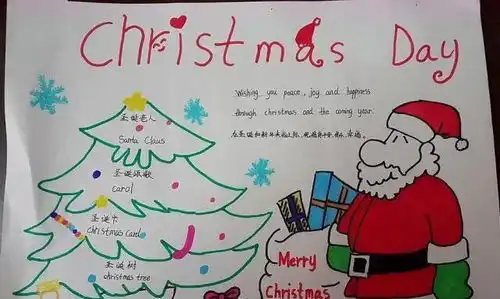 Christmas Day
Wishing you peace, joy and happiness
through christmas and the coming year.
圣诞老人
Santa Claus
圣诞颂歌
carol
圣诞卡
christmas Card
圣诞树
christmas tree
Merry
Christmas